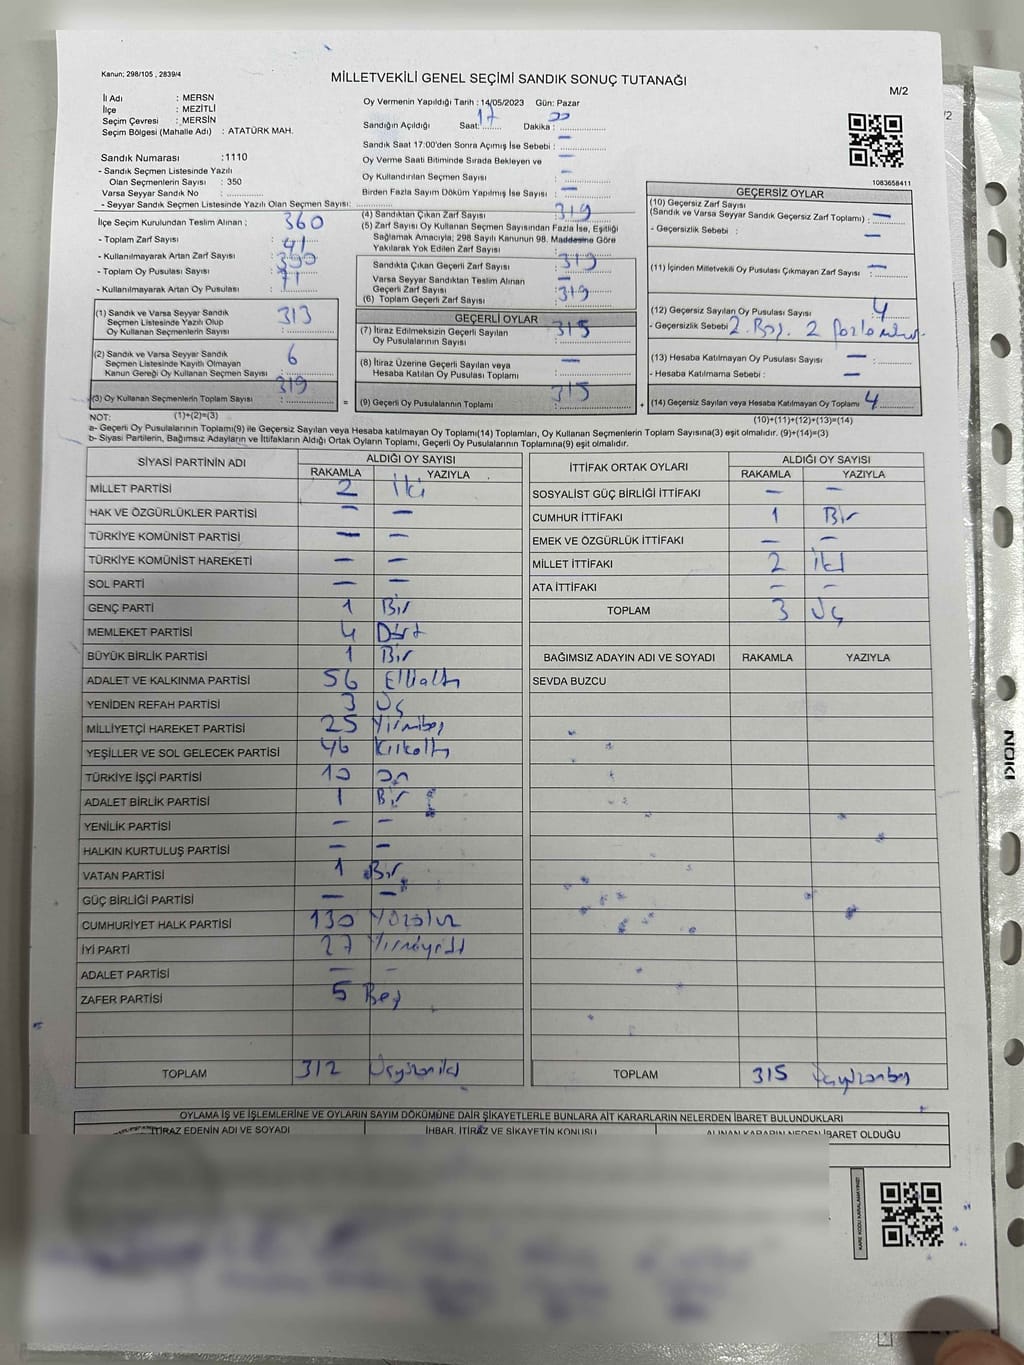 Kanun; 298/105 , 2839/4
MİLLETVEKİLİ GENEL SEÇİMİ SANDIK SONUÇ TUTANAĞI
M/2
İl Adı : MERSN
İlçe : MEZİTLİ
Seçim Çevresi : MERSİN
Seçim Bölgesi (Mahalle Adı) : ATATÜRK MAH.
Oy Vermenin Yapıldığı Tarih : 14/05/2023 Gün: Pazar
Sandığın Açıldığı Saat: 17 Dakika : 00
Sandık Saat 17:00'den Sonra Açımış İse Sebebi : —
Oy Verme Saati Bitiminde Sırada Bekleyen ve
Oy Kullandırılan Seçmen Sayısı : —
Birden Fazla Sayım Döküm Yapılmış İse Sayısı : —
Sandık Numarası :1110
- Sandık Seçmen Listesinde Yazılı
Olan Seçmenlerin Sayısı : 350
Varsa Seyyar Sandık No :
- Seyyar Sandık Seçmen Listesinde Yazılı Olan Seçmen Sayısı:
1083658411
İlçe Seçim Kurulundan Teslim Alınan ;
- Toplam Zarf Sayısı : 360
- Kullanılmayarak Artan Zarf Sayısı : 41
- Toplam Oy Pusulası Sayısı : 390
- Kullanılmayarak Artan Oy Pusulası : 71
(1) Sandık ve Varsa Seyyar Sandık
Seçmen Listesinde Yazılı Olup
Oy Kullanan Seçmenlerin Sayısı : 313
(2) Sandık ve Varsa Seyyar Sandık
Seçmen Listesinde Kayıtlı Olmayan
Kanun Gereği Oy Kullanan Seçmen Sayısı : 6
(3) Oy Kullanan Seçmenlerin Toplam Sayısı : 319
(4) Sandıktan Çıkan Zarf Sayısı : 319
(5) Zarf Sayısı Oy Kullanan Seçmen Sayısından Fazla İse, Eşitliği
Sağlamak Amacıyla; 298 Sayılı Kanunun 98. Maddesine Göre
Yakılarak Yok Edilen Zarf Sayısı :
Sandıkta Çıkan Geçerli Zarf Sayısı : 319
Varsa Seyyar Sandıktan Teslim Alınan
Geçerli Zarf Sayısı : —
(6) Toplam Geçerli Zarf Sayısı : 319
GEÇERLİ OYLAR
(7) İtiraz Edilmeksizin Geçerli Sayılan
Oy Pusulalarının Sayısı : 315
(8) İtiraz Üzerine Geçerli Sayılan veya
Hesaba Katılan Oy Pusulası Toplamı : —
= (9) Geçerli Oy Pusulalarının Toplamı : 315
GEÇERSİZ OYLAR
(10) Geçersiz Zarf Sayısı
(Sandık ve Varsa Seyyar Sandık Geçersiz Zarf Toplamı) : —
- Geçersizlik Sebebi : —
(11) İçinden Milletvekili Oy Pusulası Çıkmayan Zarf Sayısı : —
(12) Geçersiz Sayılan Oy Pusulası Sayısı : 4
- Geçersizlik Sebebi : 2 Boş. 2
(13) Hesaba Katılmayan Oy Pusulası Sayısı : —
- Hesaba Katılmama Sebebi : —
+ (14) Geçersiz Sayılan veya Hesaba Katılmayan Oy Toplamı : 4
NOT: (1)+(2)=(3) (10)+(11)+(12)+(13)=(14)
a- Geçerli Oy Pusulalarının Toplamı(9) ile Geçersiz Sayılan veya Hesaba Katılmayan Oy Toplamı(14) Toplamları, Oy Kullanan Seçmenlerin Toplam Sayısına(3) eşit olmalıdır. (9)+(14)=(3)
b- Siyasi Partilerin, Bağımsız Adayların ve İttifakların Aldığı Ortak Oyların Toplamı, Geçerli Oy Pusulalarının Toplamına(9) eşit olmalıdır.
SİYASİ PARTİNİN ADI ALDIĞI OY SAYISI
RAKAMLA YAZIYLA
MİLLET PARTİSİ 2 İki
HAK VE ÖZGÜRLÜKLER PARTİSİ — —
TÜRKİYE KOMÜNİST PARTİSİ — —
TÜRKİYE KOMÜNİST HAREKETİ — —
SOL PARTİ — —
GENÇ PARTİ 1 Bir
MEMLEKET PARTİSİ 4 Dört
BÜYÜK BİRLİK PARTİSİ 1 Bir
ADALET VE KALKINMA PARTİSİ 56 Ellialtı
YENİDEN REFAH PARTİSİ 3 Üç
MİLLİYETÇİ HAREKET PARTİSİ 25 Yirmibeş
YEŞİLLER VE SOL GELECEK PARTİSİ 46 Kırkaltı
TÜRKİYE İŞÇİ PARTİSİ 10 On
ADALET BİRLİK PARTİSİ 1 Bir
YENİLİK PARTİSİ — —
HALKIN KURTULUŞ PARTİSİ — —
VATAN PARTİSİ 1 Bir
GÜÇ BİRLİĞİ PARTİSİ — —
CUMHURİYET HALK PARTİSİ 130 Yüzotuz
İYİ PARTİ 27 Yirmiyedi
ADALET PARTİSİ — —
ZAFER PARTİSİ 5 Beş
TOPLAM 312 Üçyüzoniki
İTTİFAK ORTAK OYLARI ALDIĞI OY SAYISI
RAKAMLA YAZIYLA
SOSYALİST GÜÇ BİRLİĞİ İTTİFAKI — —
CUMHUR İTTİFAKI 1 Bir
EMEK VE ÖZGÜRLÜK İTTİFAKI — —
MİLLET İTTİFAKI 2 İki
ATA İTTİFAKI — —
TOPLAM 3 Üç
BAĞIMSIZ ADAYIN ADI VE SOYADI RAKAMLA YAZIYLA
SEVDA BUZCU
TOPLAM 315 Üçyüzonbeş
OYLAMA İŞ VE İŞLEMLERİNE VE OYLARIN SAYIM DÖKÜMÜNE DAİR ŞİKAYETLERLE BUNLARA AİT KARARLARIN NELERDEN İBARET BULUNDUKLARI
İTİRAZ EDENİN ADI VE SOYADI İHBAR, İTİRAZ VE ŞİKAYETİN KONUSU ALINAN KARARIN NEDEN İBARET OLDUĞU
KARE KODU KARALAMAYINIZ!
NOKI